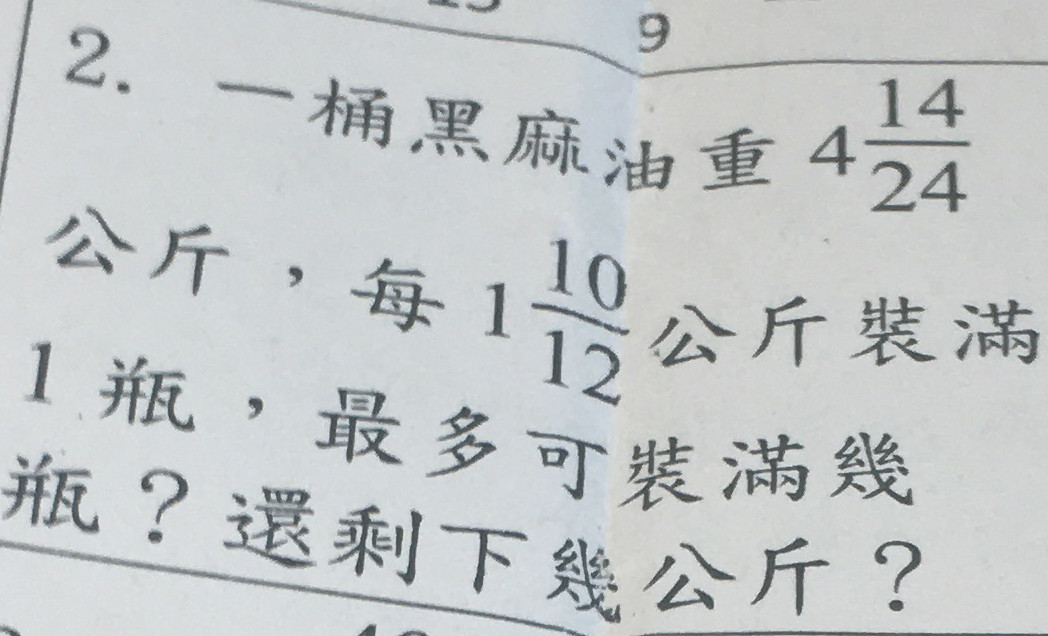 9
2. 一桶黑麻油重 4 14/24
公斤，每 1 10/12 公斤裝滿
1 瓶，最多可裝滿幾
瓶？還剩下幾公斤？